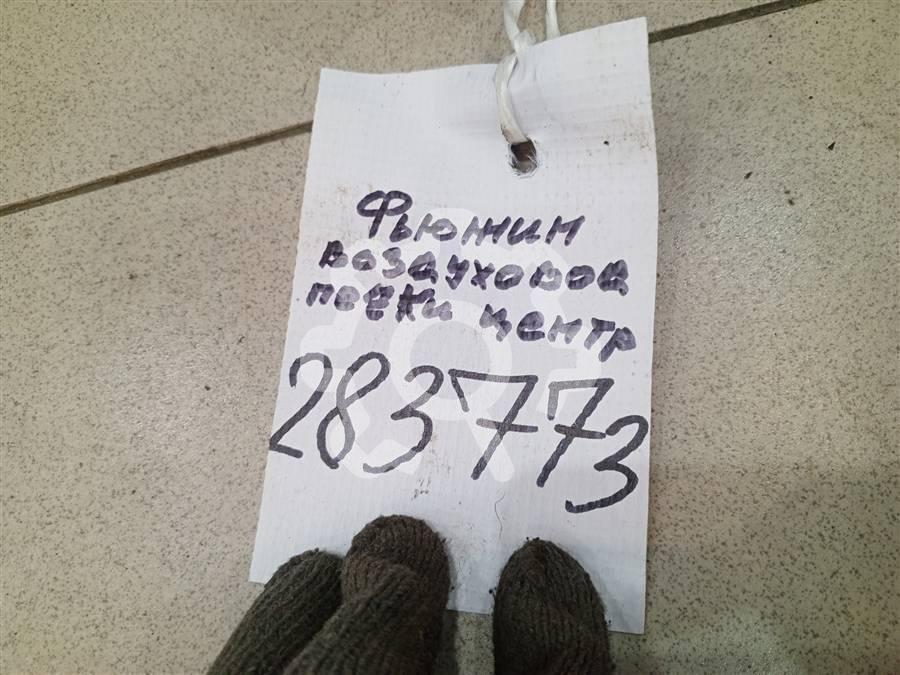 Фьюжин
воздуховод
печки центр
283773